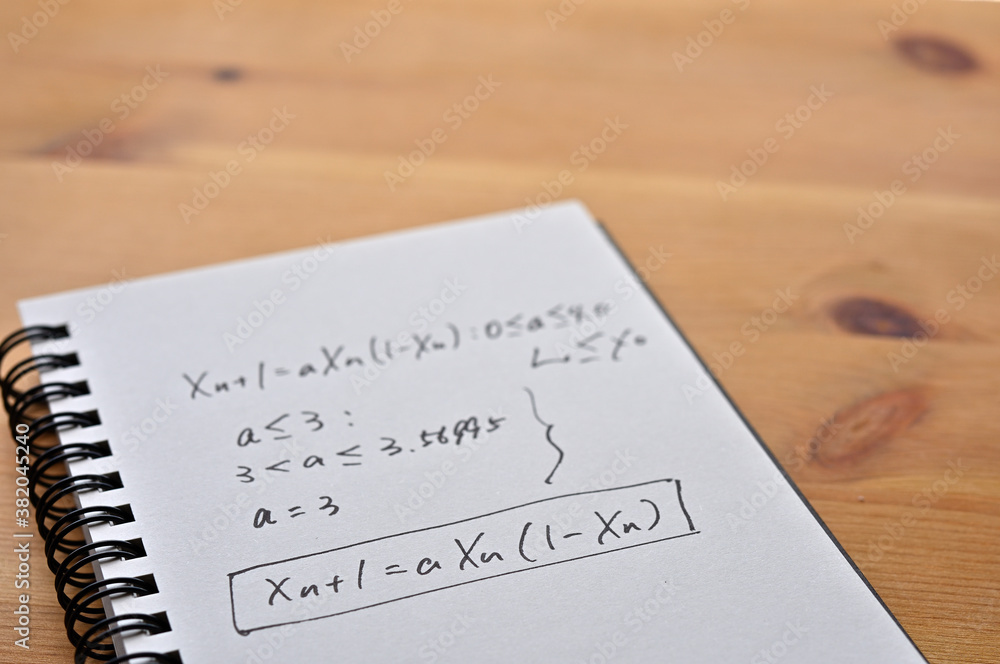 Xn+1=aXn(1-Xn):0≤a≤4.0
≤X0
a≤3:
3<a≤3.56995
a=3
Xn+1=aXn(1-Xn)
Adobe Stock | #382045240